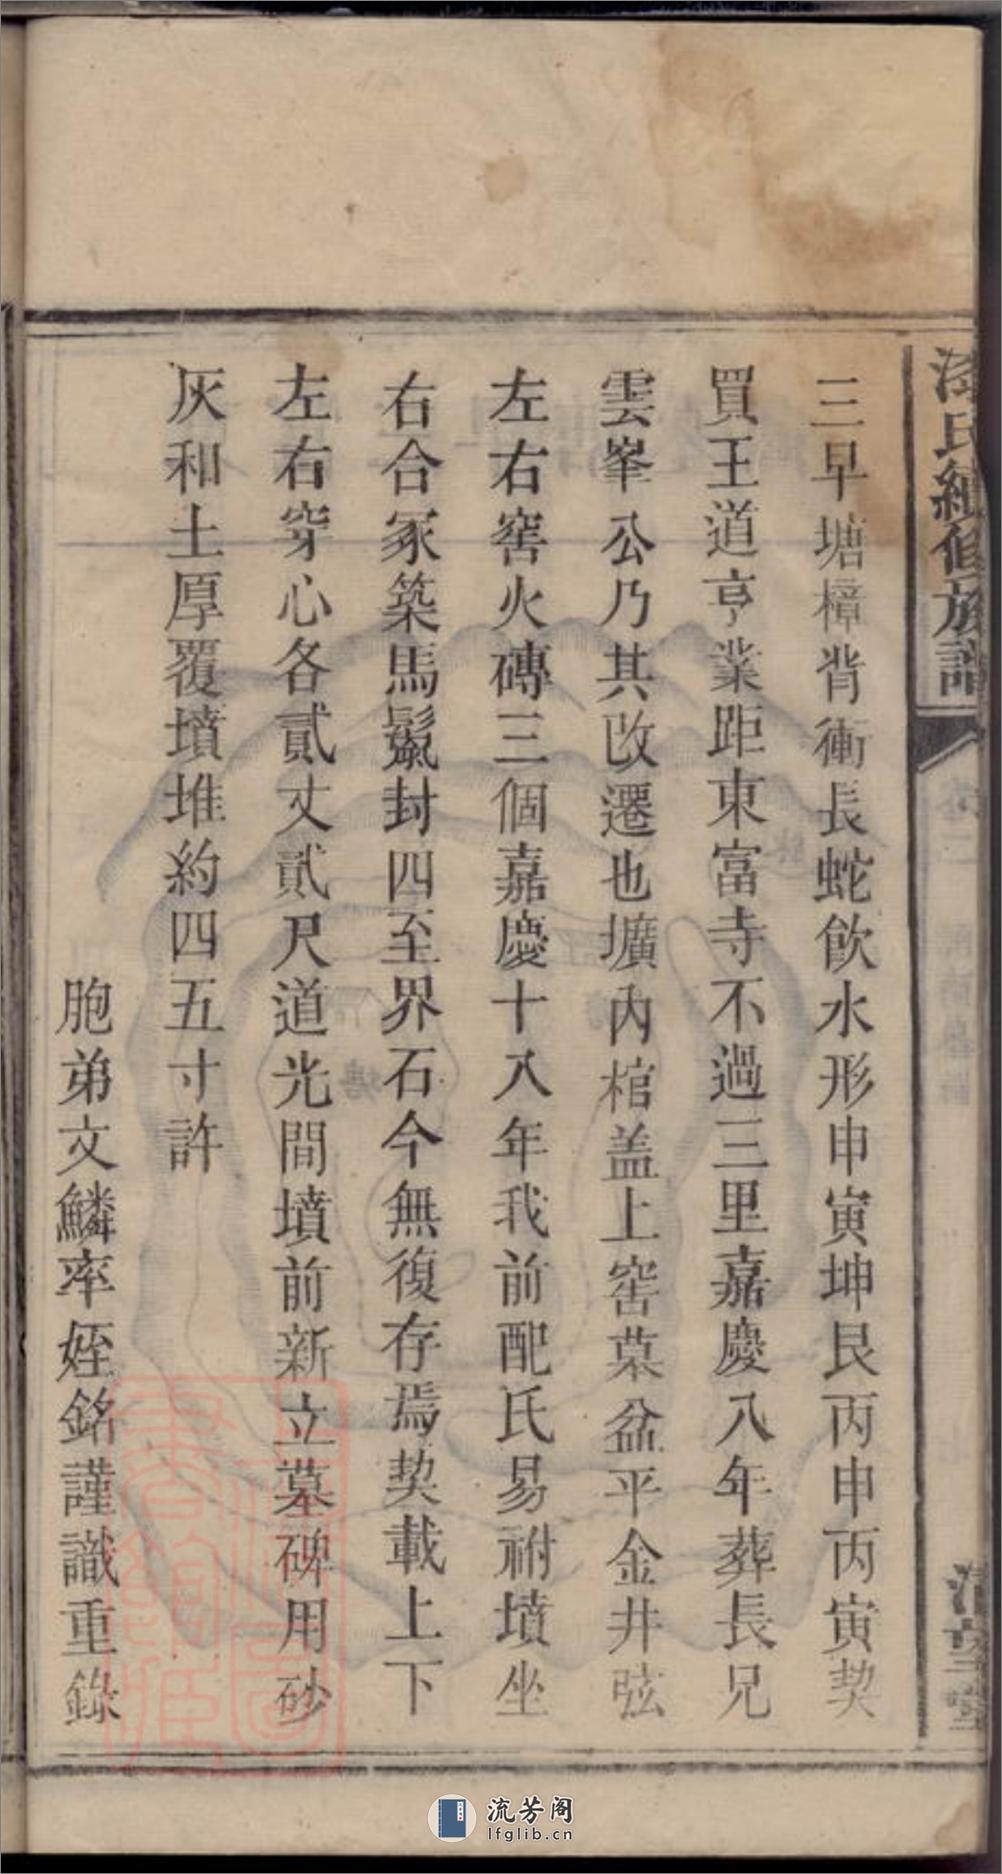 三早塘樟背衝長蛇飲水形申寅坤艮丙申丙寅契
買王道亨業距東富寺不過三里嘉慶八年葬長兄
雲峯公乃其改遷也壙內棺盖上窖菓盆平金井弦
左右窖火磚三個嘉慶十八年我前配氏易祔墳坐
右合冢築馬鬣封四至界石今無復存焉契載上下
左右穿心各貳丈貳尺道光間墳前新立墓碑用砂
灰和土厚覆墳堆約四五寸許
胞弟文鱗率姪銘謹識重錄
氏續修族譜
堂
流芳阁
lfglib.cn